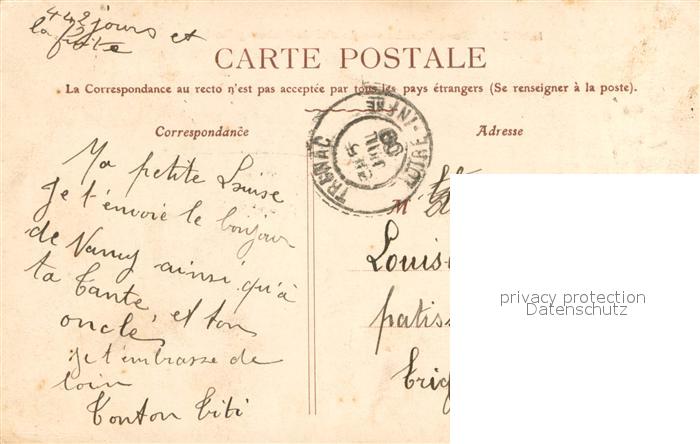 442 jours et
la fuite
CARTE POSTALE
La Correspondance au recto n'est pas acceptée par tous les pays étrangers (Se renseigner à la poste).
Correspondance
Adresse
TRIGNAC
LOIRE-INFRE
JUIL
09
Ma petite Louise
Je t'envoie le bonjour
de Nancy ainsi qu'à
ta tante, et ton
oncle,
je t'embrasse de
loin
Tonton Titi
M
Louis
patiss
Trig
privacy protection
Datenschutz